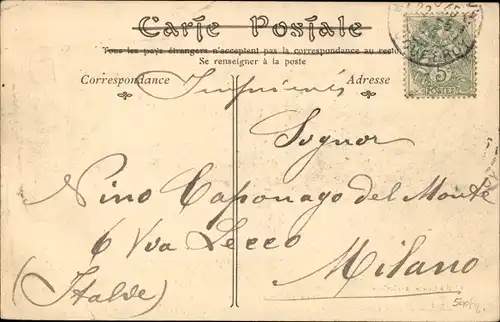 Carte Postale
Tous les pays étrangers n'acceptent pas la correspondance au recto.
Se renseigner à la poste
Correspondance
Adresse
Imprimés
Sognor
Nino Caponago del Monte
6 Via Lecco
Milano
(Italie)
5
POSTES